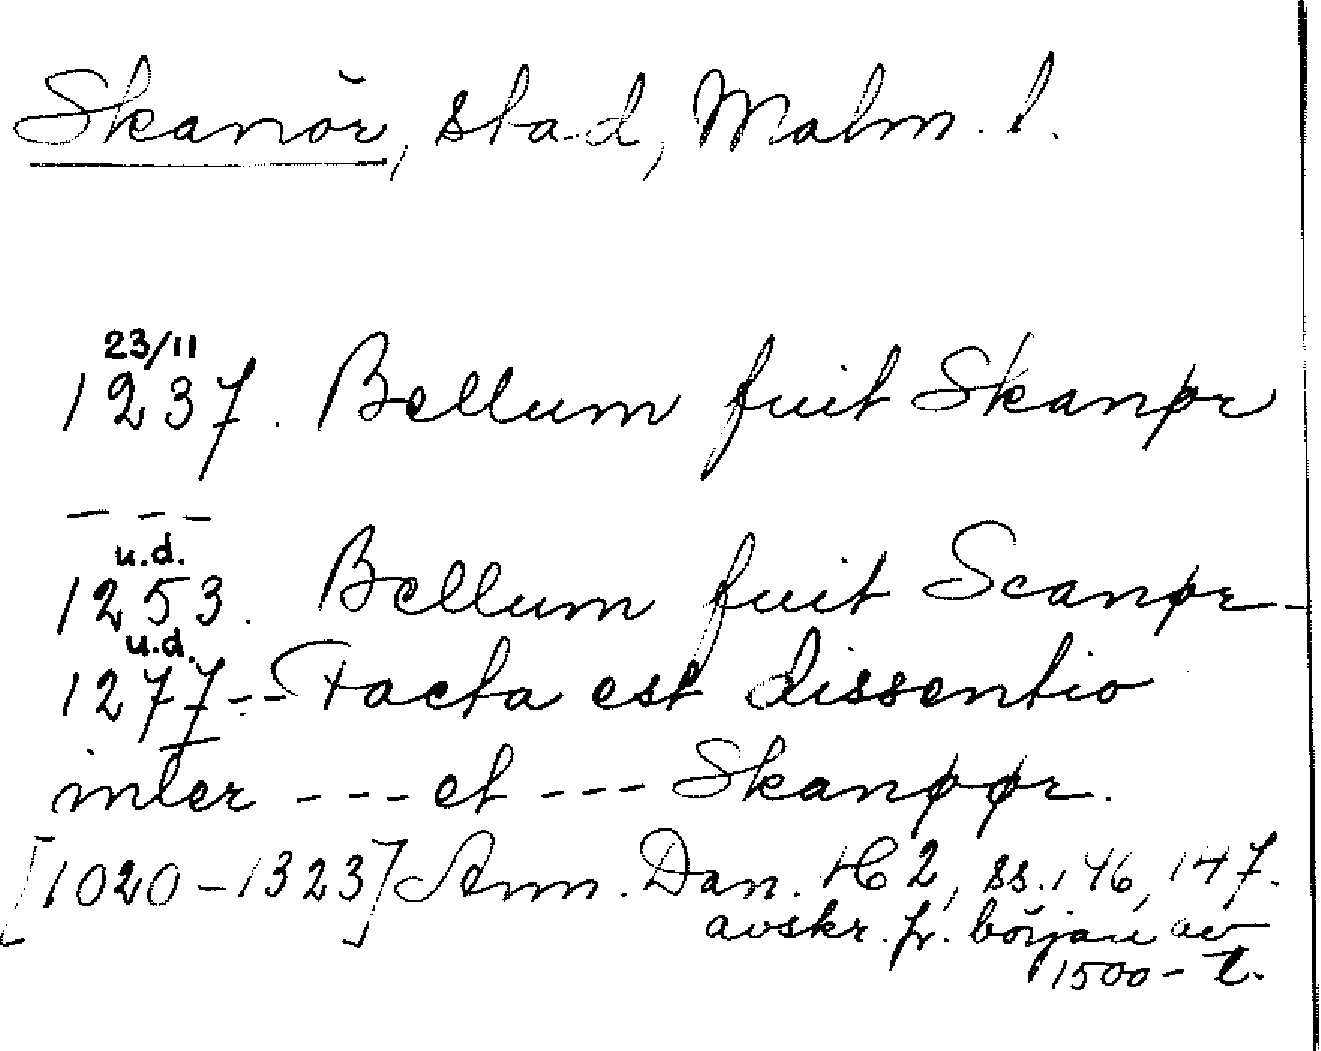 Skanör, stad, Malm. l.
23/11
1237. Bellum fuit Skanør
- - -
u.d.
1253. Bellum fuit Scanør-
u.d.
1277 - - Facta est dissentio
inter - - - et - - - Skanøør.
[1020-1323] Ann. Dan. H 2, ss. 146, 147.
avskr. fr. början av
1500-t.